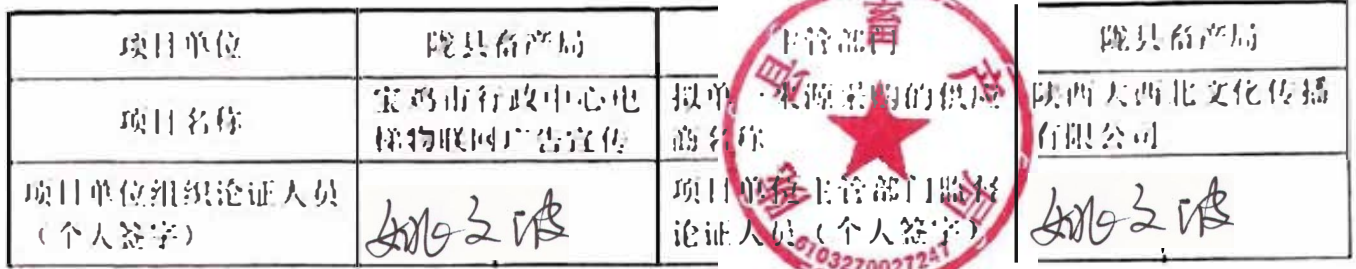 项目单位
陇县畜产局
主管部门
陇县畜产局
项目名称
宝鸡市行政中心电
梯物联网广告宣传
拟单一来源采购的供应
商名称
陕西大西北文化传播
有限公司
项目单位组织论证人员
（个人签字）
姚文波
项目单位主管部门监督
论证人员（个人签字）
姚文波
陇县畜产局
6103270027247